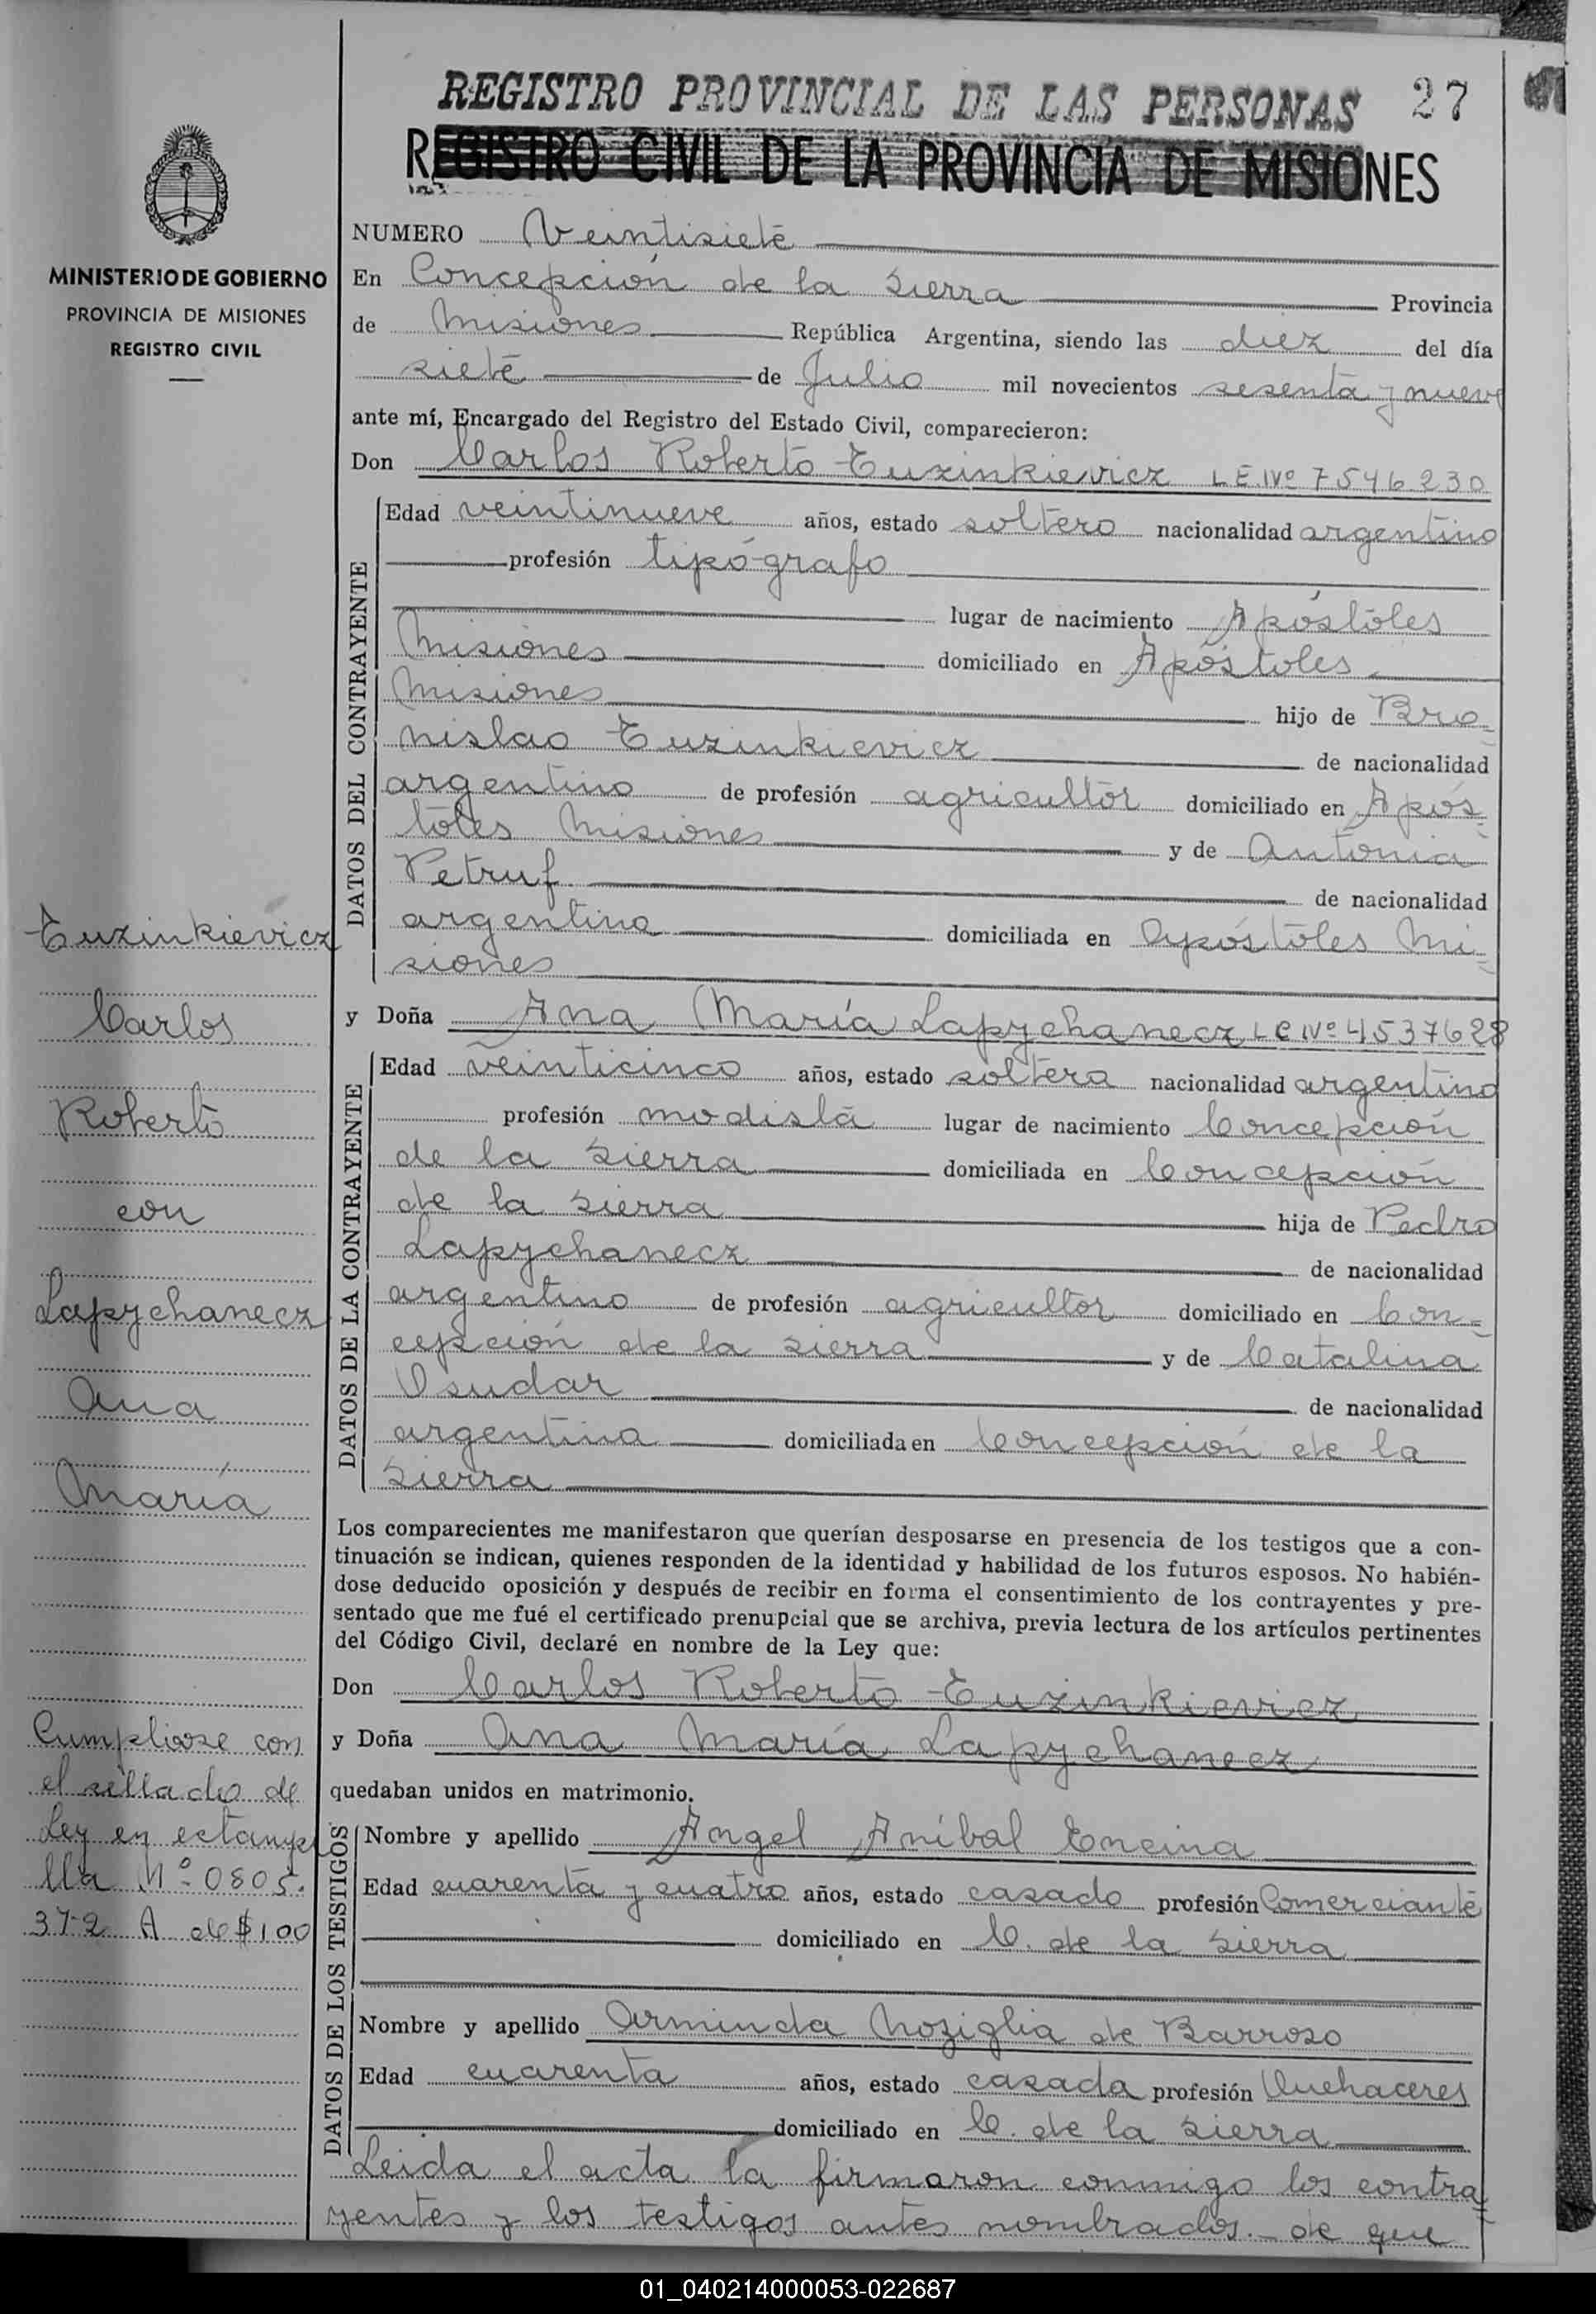 REGISTRO PROVINCIAL DE LAS PERSONAS 27
REGISTRO CIVIL DE LA PROVINCIA DE MISIONES
MINISTERIO DE GOBIERNO
PROVINCIA DE MISIONES
REGISTRO CIVIL
NUMERO Veintisiete
En Concepción de la Sierra Provincia
de Misiones República Argentina, siendo las diez del día
siete de Julio mil novecientos sesenta y nueve
ante mí, Encargado del Registro del Estado Civil, comparecieron:
Don Carlos Roberto Euzinkievicz L E. Nº 7546.230
DATOS DEL CONTRAYENTE
Edad veintinueve años, estado soltero nacionalidad argentino
profesión tipógrafo
lugar de nacimiento Apóstoles
Misiones domiciliado en Apóstoles
Misiones hijo de Bro=
nislao Euzinkievicz de nacionalidad
argentino de profesión agricultor domiciliado en Após=
toles Misiones y de Antonia
Petruf de nacionalidad
argentina domiciliada en Apóstoles Mi=
siones
y Doña Ana María Lapychanecz L C Nº 4537628
DATOS DE LA CONTRAYENTE
Edad veinticinco años, estado soltera nacionalidad argentina
profesión modista lugar de nacimiento Concepción
de la Sierra domiciliada en Concepción
de la Sierra hija de Pedro
Lapychanecz de nacionalidad
argentino de profesión agricultor domiciliado en Con=
cepción de la Sierra y de Catalina
Osudar de nacionalidad
argentina domiciliada en Concepción de la
Sierra
Los comparecientes me manifestaron que querían desposarse en presencia de los testigos que a con-
tinuación se indican, quienes responden de la identidad y habilidad de los futuros esposos. No habién-
dose deducido oposición y después de recibir en forma el consentimiento de los contrayentes y pre-
sentado que me fué el certificado prenupcial que se archiva, previa lectura de los artículos pertinentes
del Código Civil, declaré en nombre de la Ley que:
Don Carlos Roberto Euzinkievicz
y Doña Ana María Lapychanecz
quedaban unidos en matrimonio.
DATOS DE LOS TESTIGOS
Nombre y apellido Angel Aníbal Encina
Edad cuarenta y cuatro años, estado casado profesión Comerciante
domiciliado en C. de la Sierra
Nombre y apellido Arminda Noziglia de Barroso
Edad cuarenta años, estado casada profesión Quehaceres
domiciliado en C. de la Sierra
Leida el acta la firmaron conmigo los contra=
yentes y los testigos antes nombrados.- de que
Euzinkievicz
Carlos
Roberto
con
Lapychanecz
Ana
María
Cumpliose con
el sellado de
Ley en estampi
lla Nº 0805.
372 A de $100
01_040214000053-022687